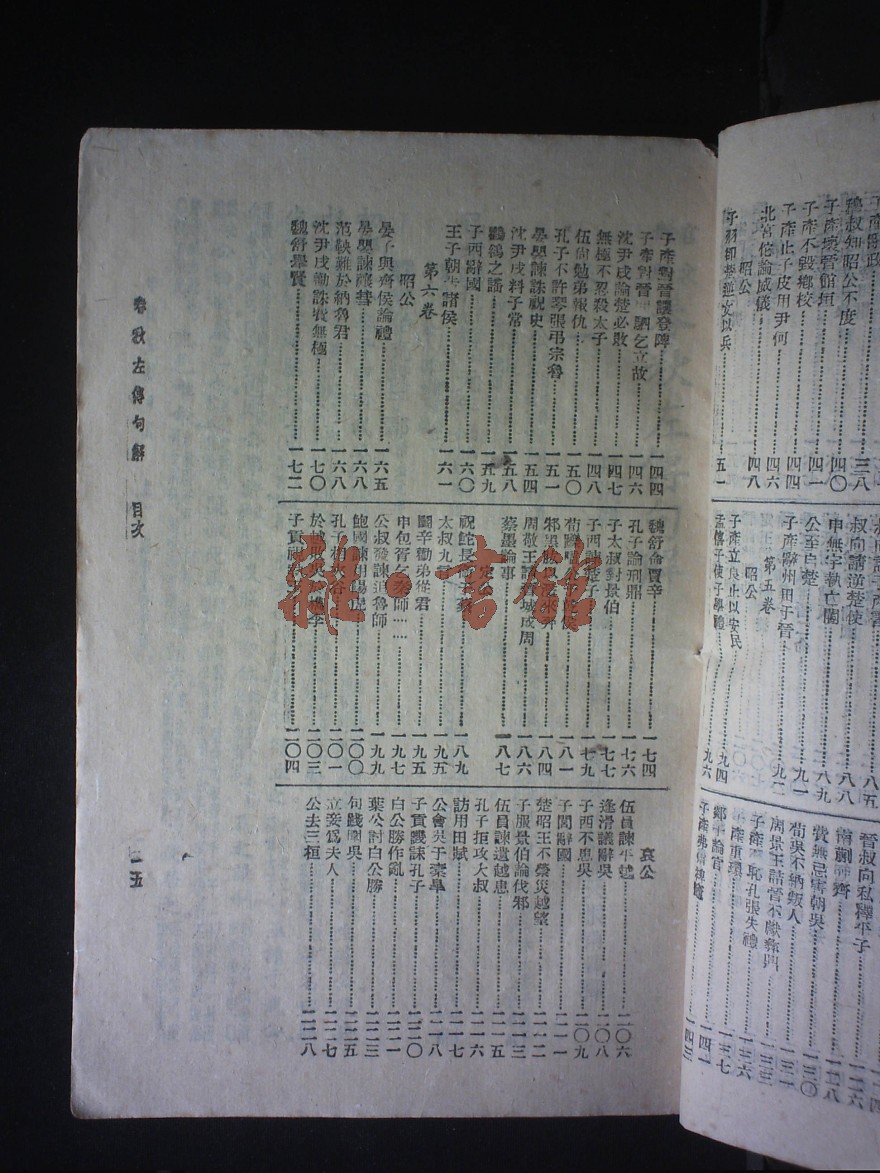 子產辭政
穆叔知昭公不度
子產壞晉館垣
子產不毀鄉校
子產止子皮用尹何
北宮佗論威儀
昭公
叔向請逆楚使
申無宇執亡閽
公至自楚
子產辭州田于晉
第五卷
昭公
子產立良止以安民
孟僖子使子學禮
晉叔向私釋平子
南蒯
費無忌害朝吳
荀吳不納叛人
周景王詰晉不獻彝器
恥孔張失禮
子產重環
郯子論官
子產對晉讓登陴 一四四
子產對晉 駟乞立故 一四六
沈尹戌論楚必敗 一四七
無極不忍殺太子 一四八
伍尚勉弟報仇 一五〇
孔子不許琴張弔宗魯
晏嬰諫誅祝史 一五四
沈尹戌料子常 一五八
鸜鵒之謠 一五九
子西辭國 一六〇
王子朝告諸侯 一六一
第六卷
昭公
晏子與齊侯論禮 一六五
晏嬰諫禳彗 一六八
范鞅難於納魯君 一六八
沈尹戌勸誅費無極 一七〇
魏舒舉賢 一七二
魏舒命賈辛 一七四
孔子論刑鼎 一七六
子太叔對景伯 一七七
子西諫楚子 一七九
荀躒 一八一
邾黑肱 一八四
周敬王請晉城成周 一八六
蔡墨論事 一八七
定公
祝鮀長衛于蔡 一八九
太叔九言 一九五
鬭辛勸弟從君 一九五
申包胥乞秦師 一九七
公叔發諫追魯師 一九九
鮑國諫用陽虎 二〇〇
孔子相夾谷 二〇一
於越敗吳 檇李 二〇三
子貢視 二〇四
哀公
伍員諫平越 二〇六
逢滑議辭吳 二〇八
子西不患吳 二〇九
子閭辭國 二一一
楚昭王不禜災越望 二一二
子服景伯論伐邾 二一三
伍員諫遺越患 二一五
孔子拒攻大叔 二一六
訪用田賦 二一七
公會吳于橐皐 二一八
子貢譏誄孔子 二二〇
白公勝作亂 二二一
葉公討白公勝 二二三
句踐圍吳 二二五
立妾爲夫人 二二七
公去三桓 二二八
春秋左傳句解 目次
五
龍·書館